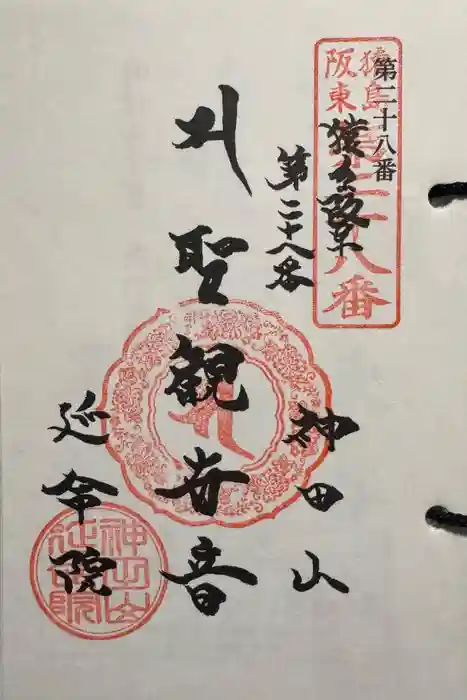 第二十八番
猿島阪東第二十八番
猿島阪東
第二十八番
神田山
聖観世音
延命院
神田山延命院